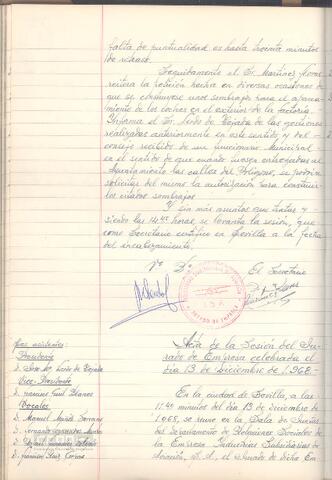 falta de puntualidad es hasta treinta minutos
de retraso.
Seguidamente el Sr. Martínez
reitera la petición hecha en diversas ocasiones de
que se construyese unos sombrajos para el aparca-
miento de los coches en el exterior de la factoría.
Informa el Sr. de Tejada de las gestiones
realizadas anteriormente en este sentido y del
consejo recibido de un funcionario Municipal
en el sentido de que cuando sean entregadas al
Ayuntamiento las calles del Polígono, se podrá
solicitar del mismo la autorización para construir
los citados sombrajos.
Y sin más asuntos que tratar y
siendo las 14'45 horas, se levanta la sesión, que
como Secretario certifico en Sevilla a la fecha
del encabezamiento.
Vº Bº
El Secretario
JURADO DE EMPRESA
Acta de la Sesión del Ju-
rado de Empresa celebrada el
día 13 de Diciembre de 1.968.
Sres. asistentes:
Presidente
de Tejada
Vice-Presidente
D. Francisco Blanes
Vocales
D. Manuel Serrano
D. Fernando
D.
D. Francisco Ruiz Correa
En la ciudad de Sevilla, a las
11'40 minutos del día 13 de diciembre de
1.968, se reune en la Sala de Juntas
del Departamento de Relaciones Sociales de
la Empresa Industrias Subsidiarias de
Aviación, S.A., el Jurado de dicha Em